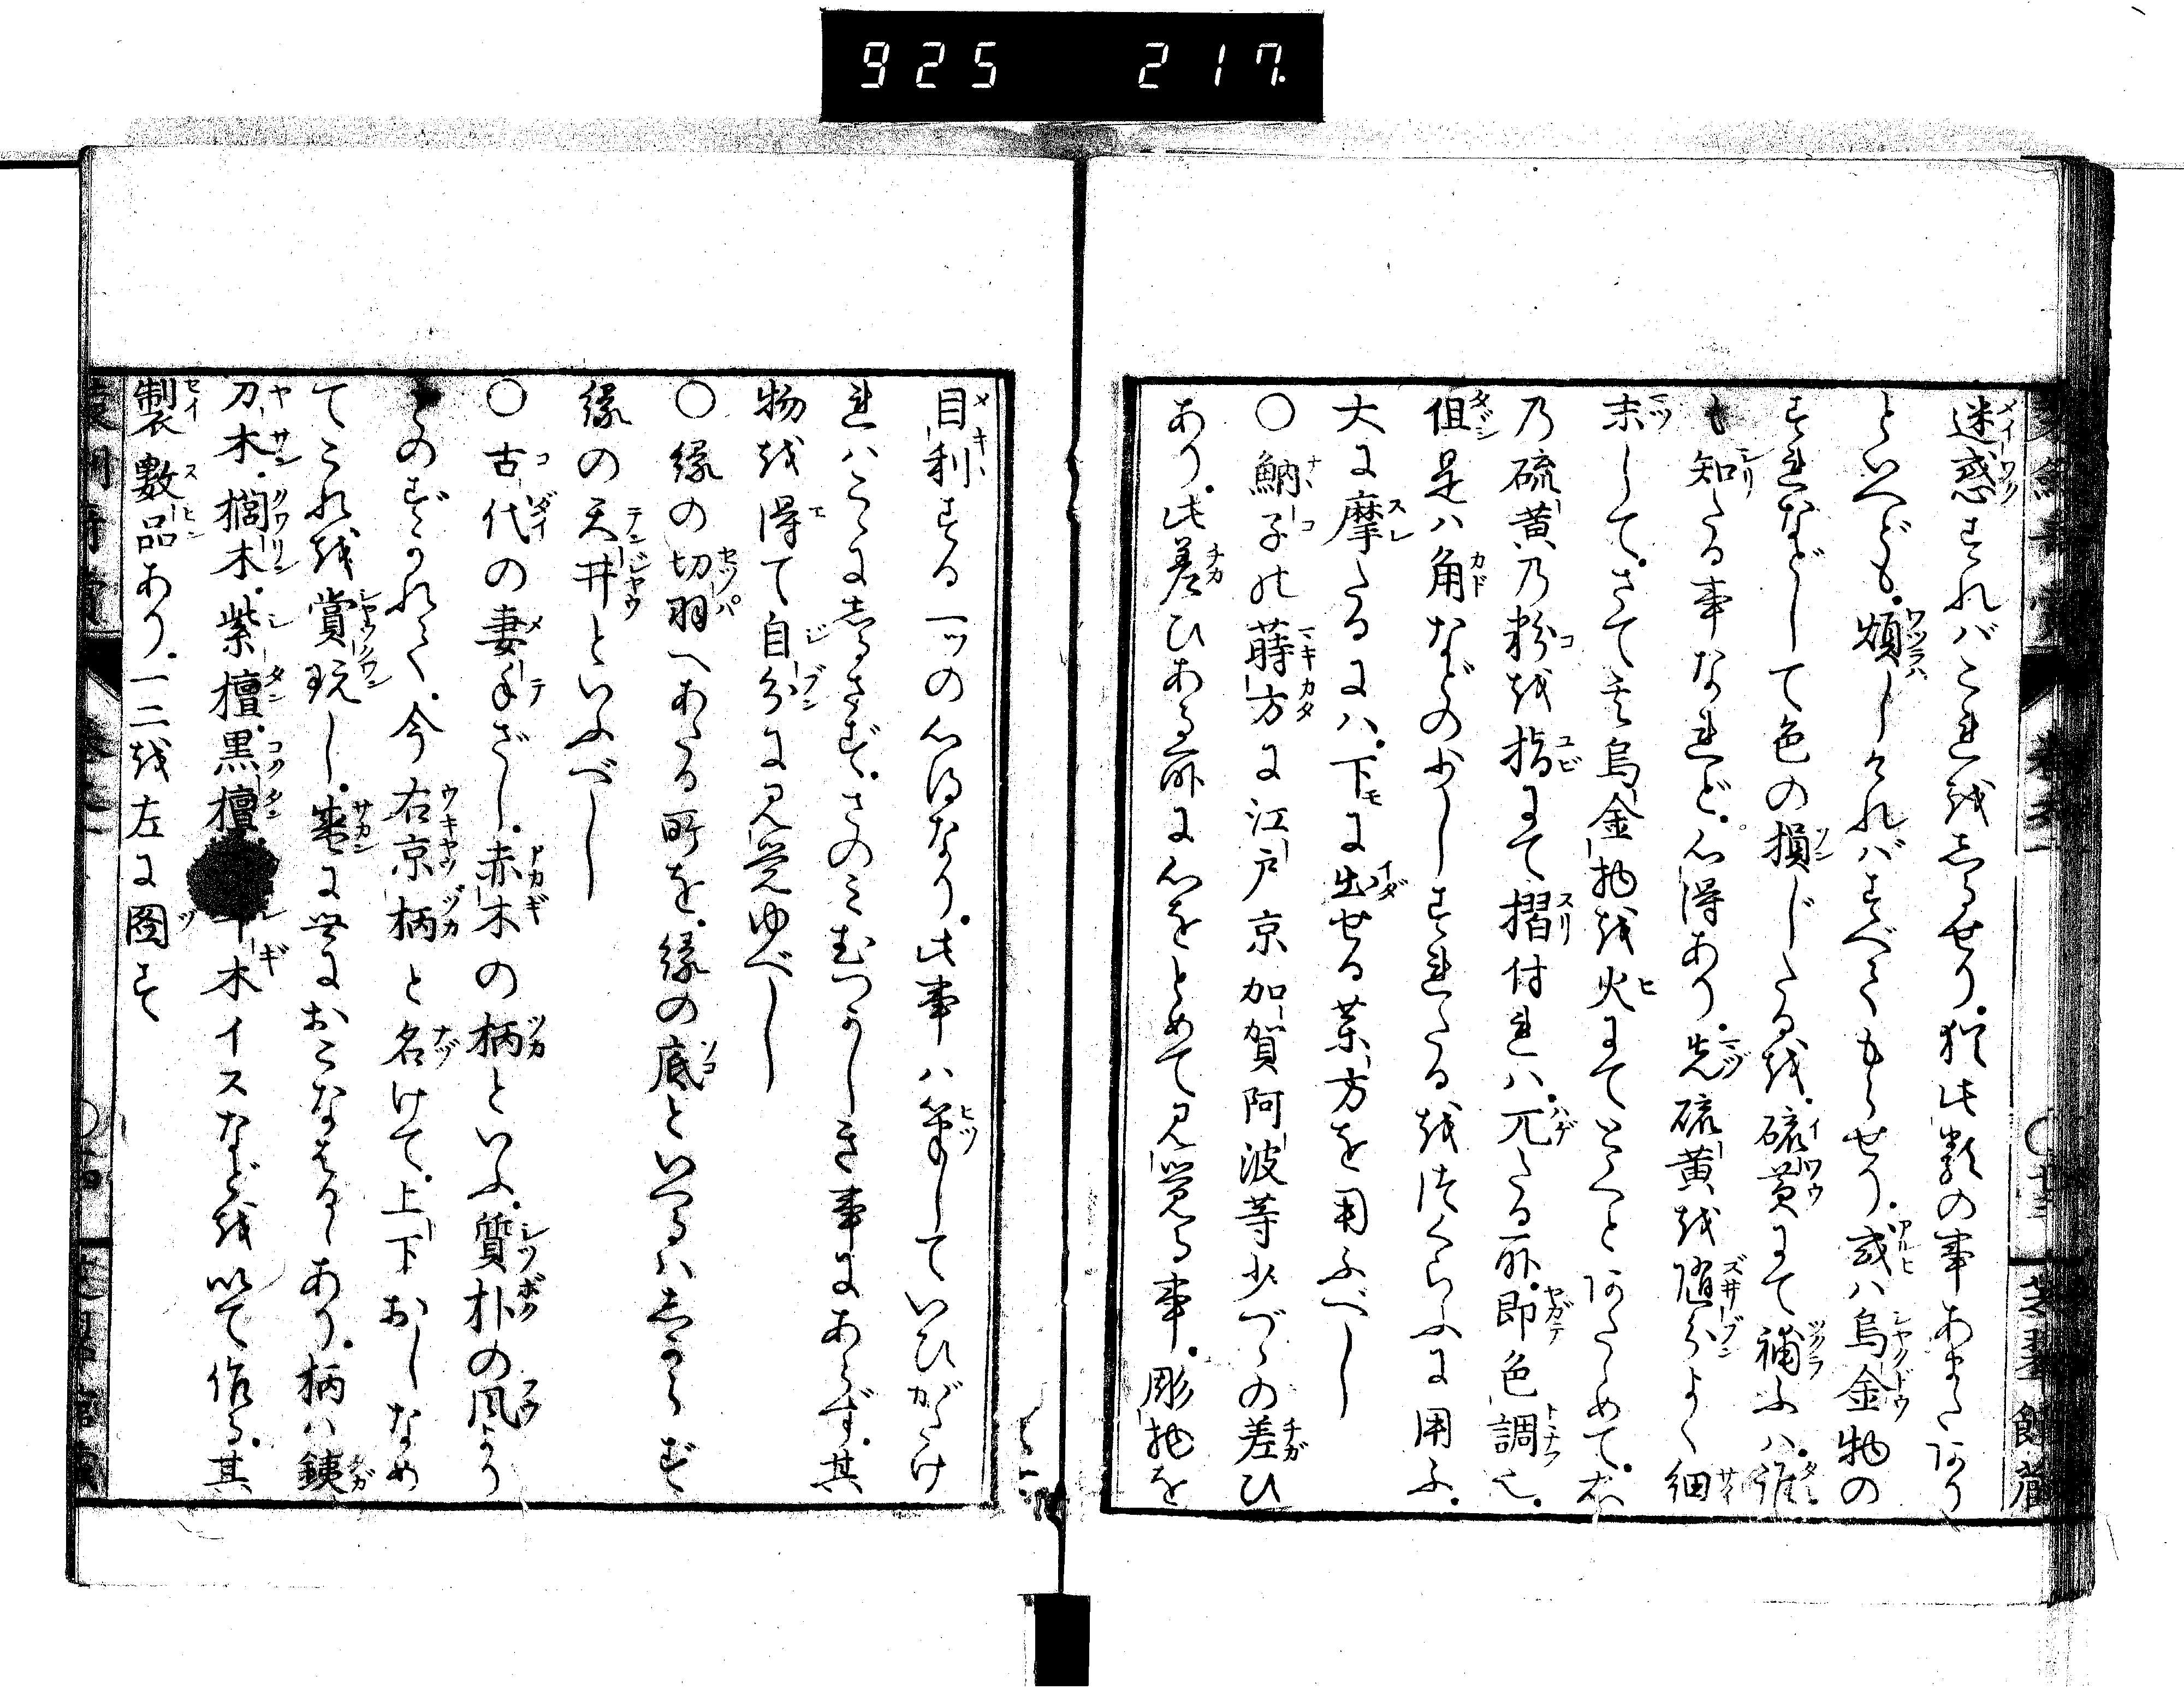 925 217
迷惑すればこれをしるせり.猶此類の事あまたあり
といへども.煩しければすべてもらせり.或ハ烏金物の
すれなどして色の損じたるを.硫黄にて補ふハ.誰
も知たる事なれど.心得あり.先硫黄を随分よく細
末して.さて烏金物を火にてとくとあたゝめて.右
の硫黄の粉を指にて摺付れハ.兀たる所.即色調也.
但是ハ角などの少しすれたるをつくらふに用ふ.
大に摩たるにハ.下に出せる薬方を用ふべし
○魶子の蒔方に江戸京加賀阿波等少づゝの差ひ
あり.此差ひある所に心をとめて見覚る事.彫物を
目利する一ッの心得なり.此事ハ筆していひがたけ
れハこゝにしるさず.さのミむつかしき事にあらず.其
物を得て自分に見覚ゆべし
○縁の切羽へあたる所を.縁の底といへるハしからず
縁の天井といふべし
○古代の妻手ざし.赤木の柄といふ.質朴の風より
このずかれて.今右京柄と名けて.上下おしなめ
てこれを賞玩し.盛に世におこなはるゝあり.柄ハ銕
刀木.櫚木.紫檀.黒檀
木イスなどを以て作る.其
製數品あり.一二を左に圖す